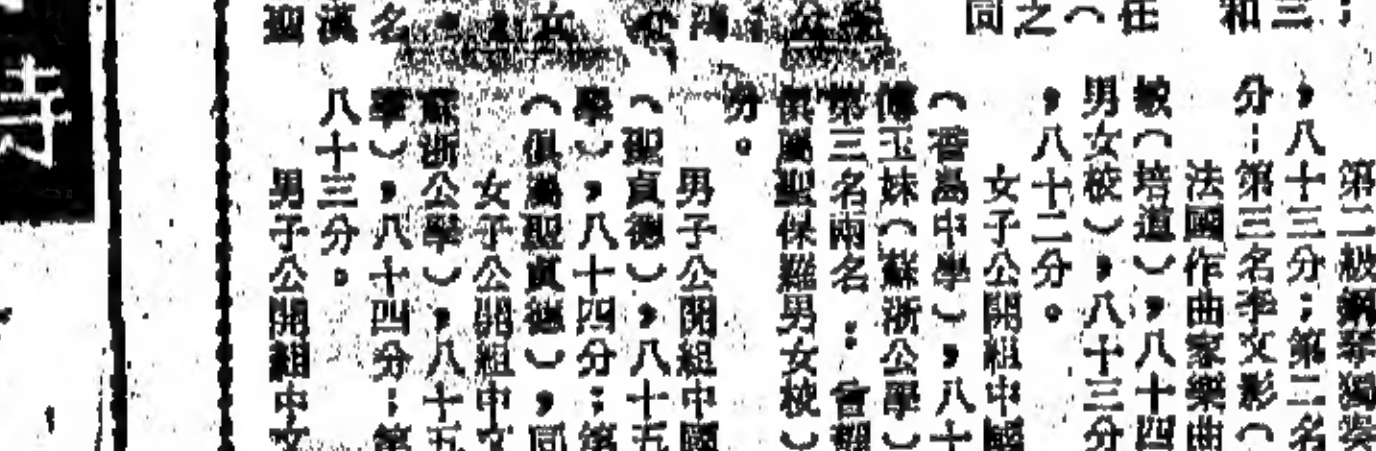 三
和
任
之
同
名
漢
迎
第二級鋼琴獨奏
，八十三分；第二名
分；第三名李文彤（
法國作曲家樂曲
敏（培道），八十四
男女校），八十三分
，八十二分。
女子公開組中國
（香島中學），八十
傅玉妹（蘇浙公學）
第三名兩名：曾
俱屬聖保羅男女校）
分。
男子公開組中國
（聖貞德），八十五
學），八十四分；第
（俱屬聖貞德），同
女子公開組中文
蘇浙公學），八十五
學），八十四分；第
八十三分。
男子公開組中文